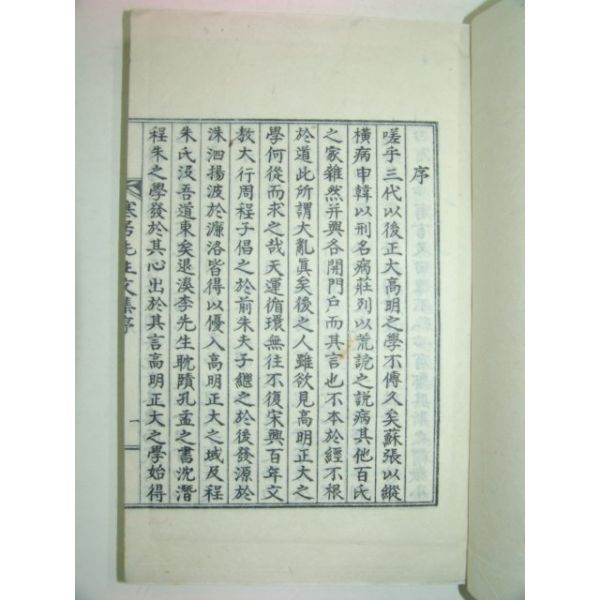 序
嗟乎三代以後正大高明之學不傳久矣蘇張以縱
橫病申韓以刑名病莊列以荒詭之說病其他百氏
之家雜然并興各開門戶而其言也不本於經不根
於道此所謂大亂眞矣後之人雖欲見高明正大之
學何從而求之哉天運循環無往不復宋興百年文
敎大行周程子倡之於前朱夫子繼之於後發源於
洙泗揚波於濂洛皆得以優入高明正大之域及程
朱氏沒吾道東矣退溪李先生耽賾孔孟之書沈潛
程朱之學發於其心出於其言高明正大之學始得
先生文集序
一